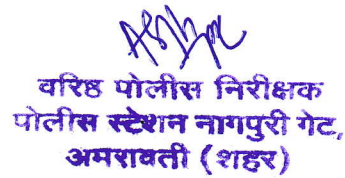 वरिष्ठ पोलीस निरीक्षक
पोलीस स्टेशन नागपुरी गेट,
अमरावती (शहर)